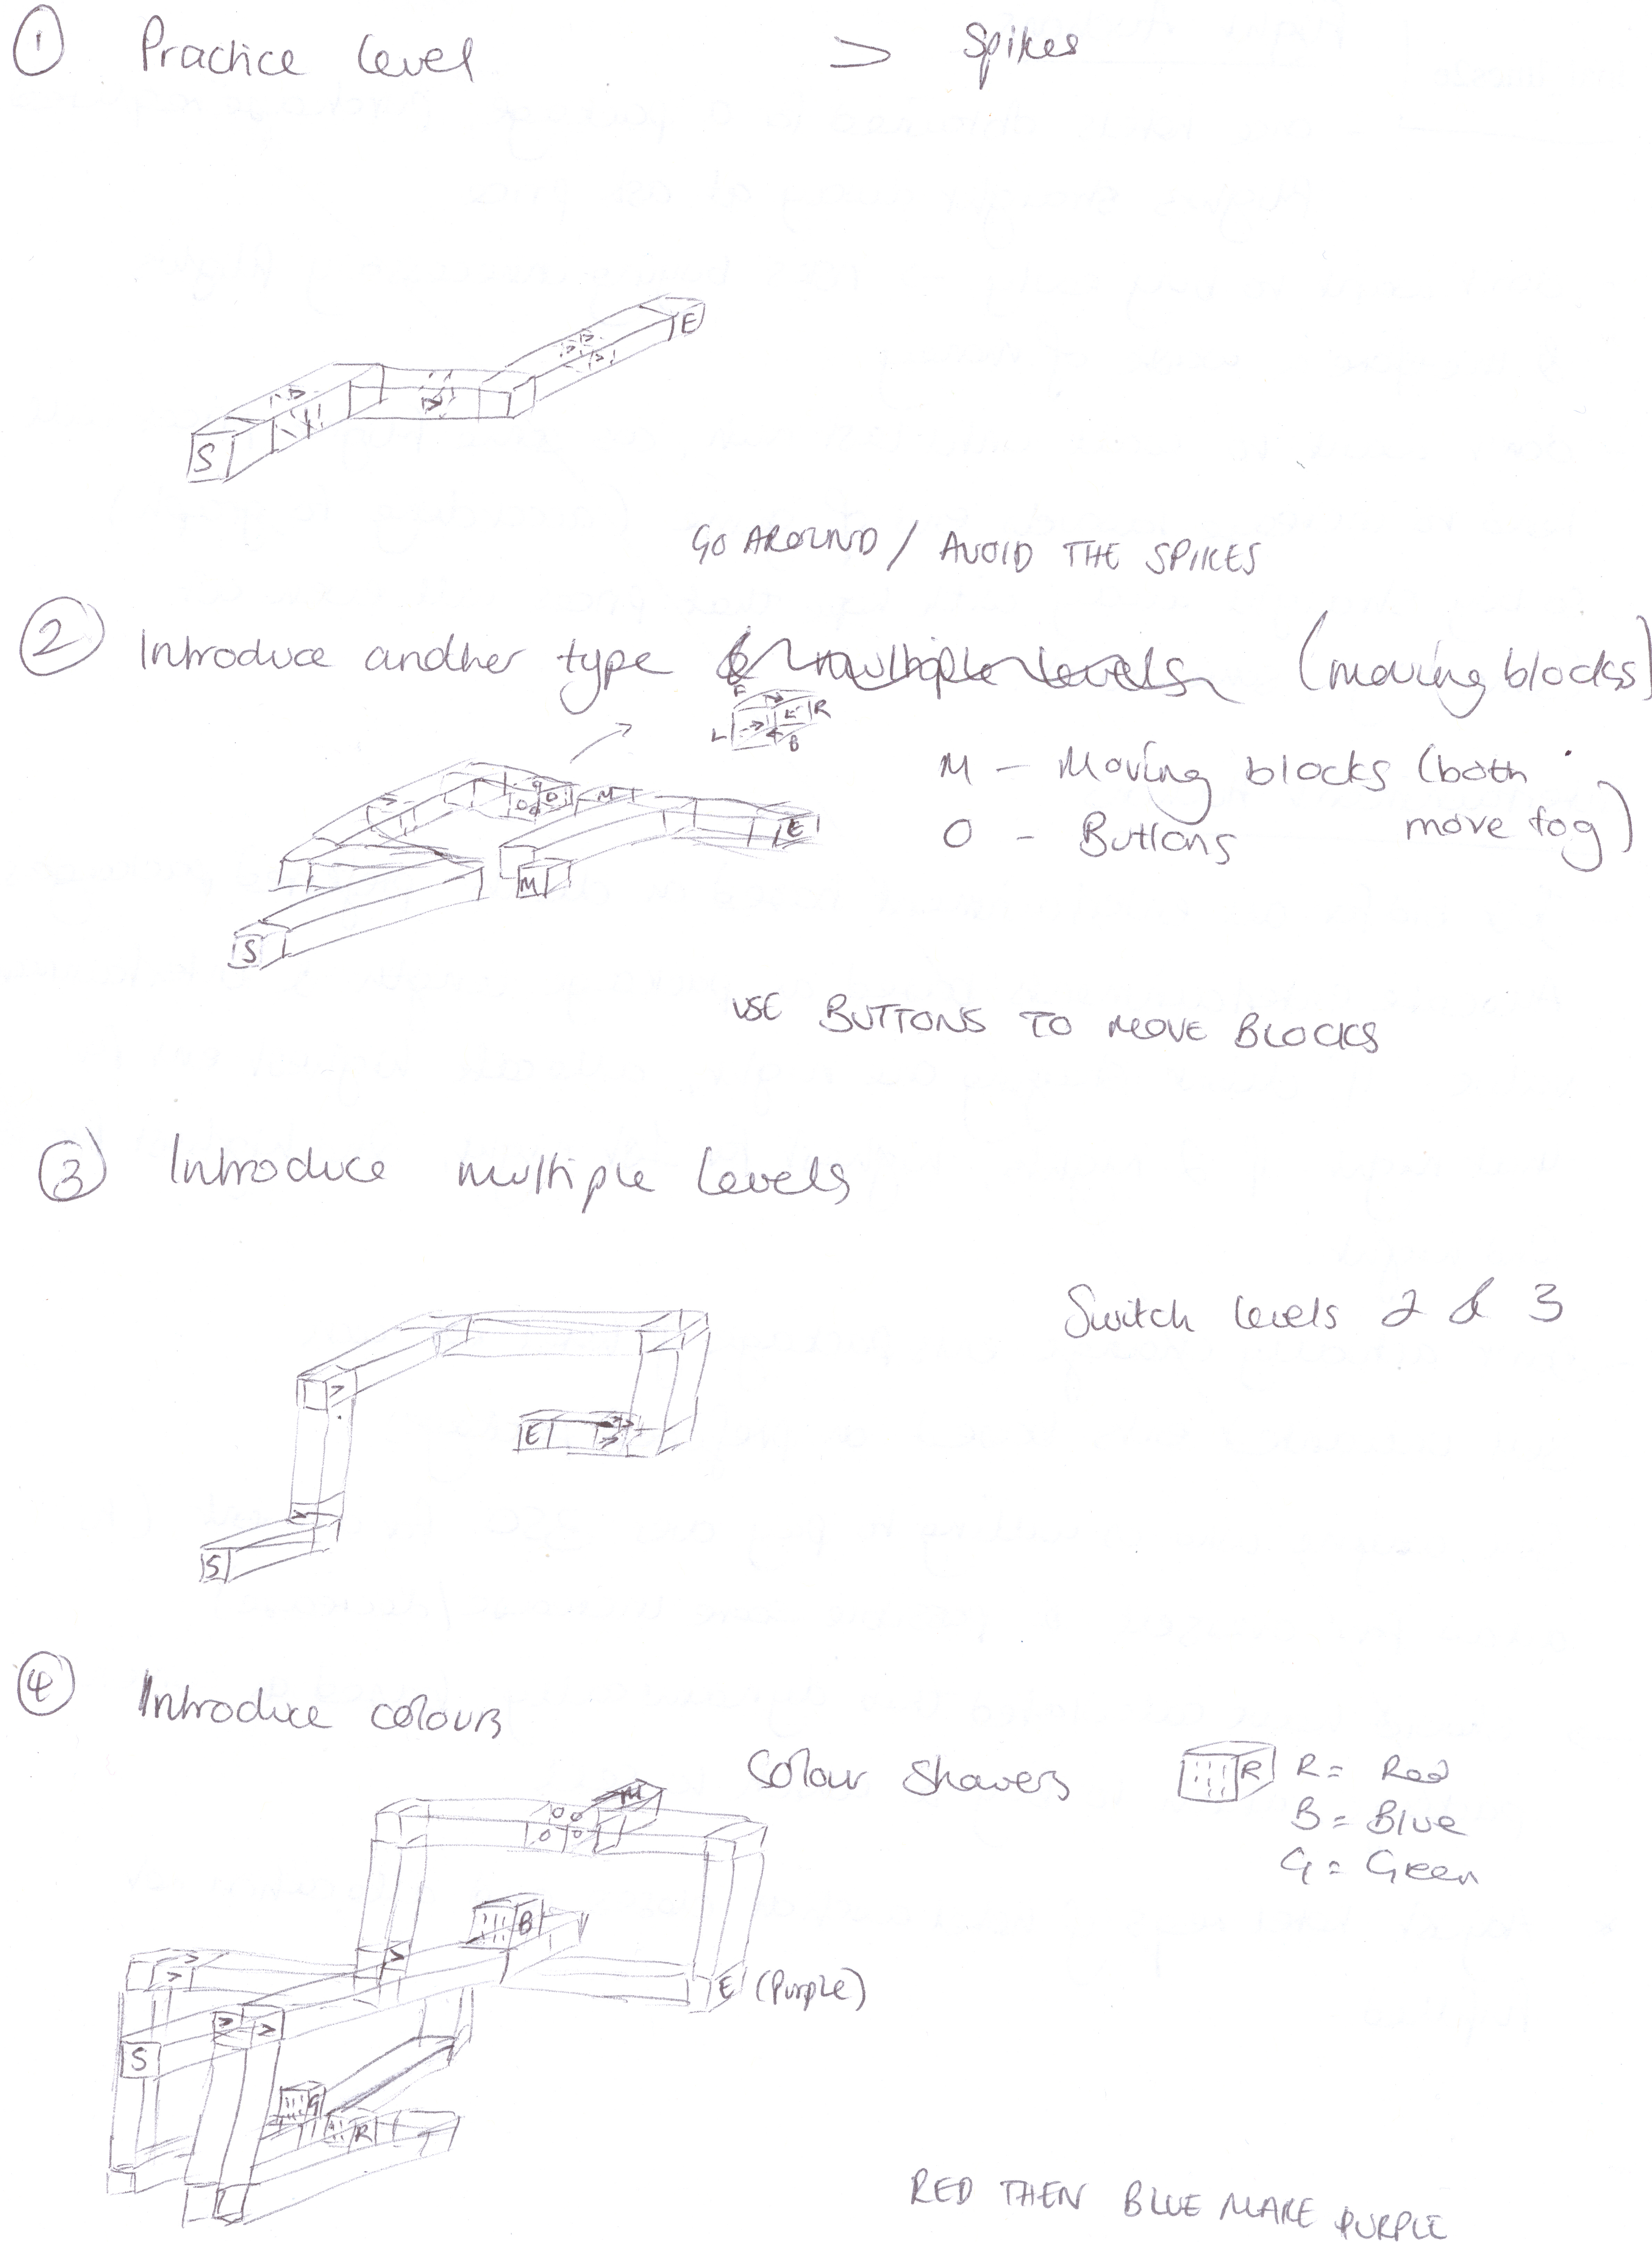 ① Practice level
> Spikes
S
E
GO AROUND / AVOID THE SPIKES
② Introduce another type & multiple levels (moving blocks)
F
L R
B
M — Moving blocks (both move tog)
O — Buttons
O O
O O
M
E
M
S
USE BUTTONS TO MOVE BLOCKS
③ Introduce multiple levels
Switch levels 2 & 3
E
S
④ Introduce colours
Colour Showers
R R = Red
B = Blue
G = Green
M
O O
O O
B
E (Purple)
S
G
R
RED THEN BLUE MAKE PURPLE